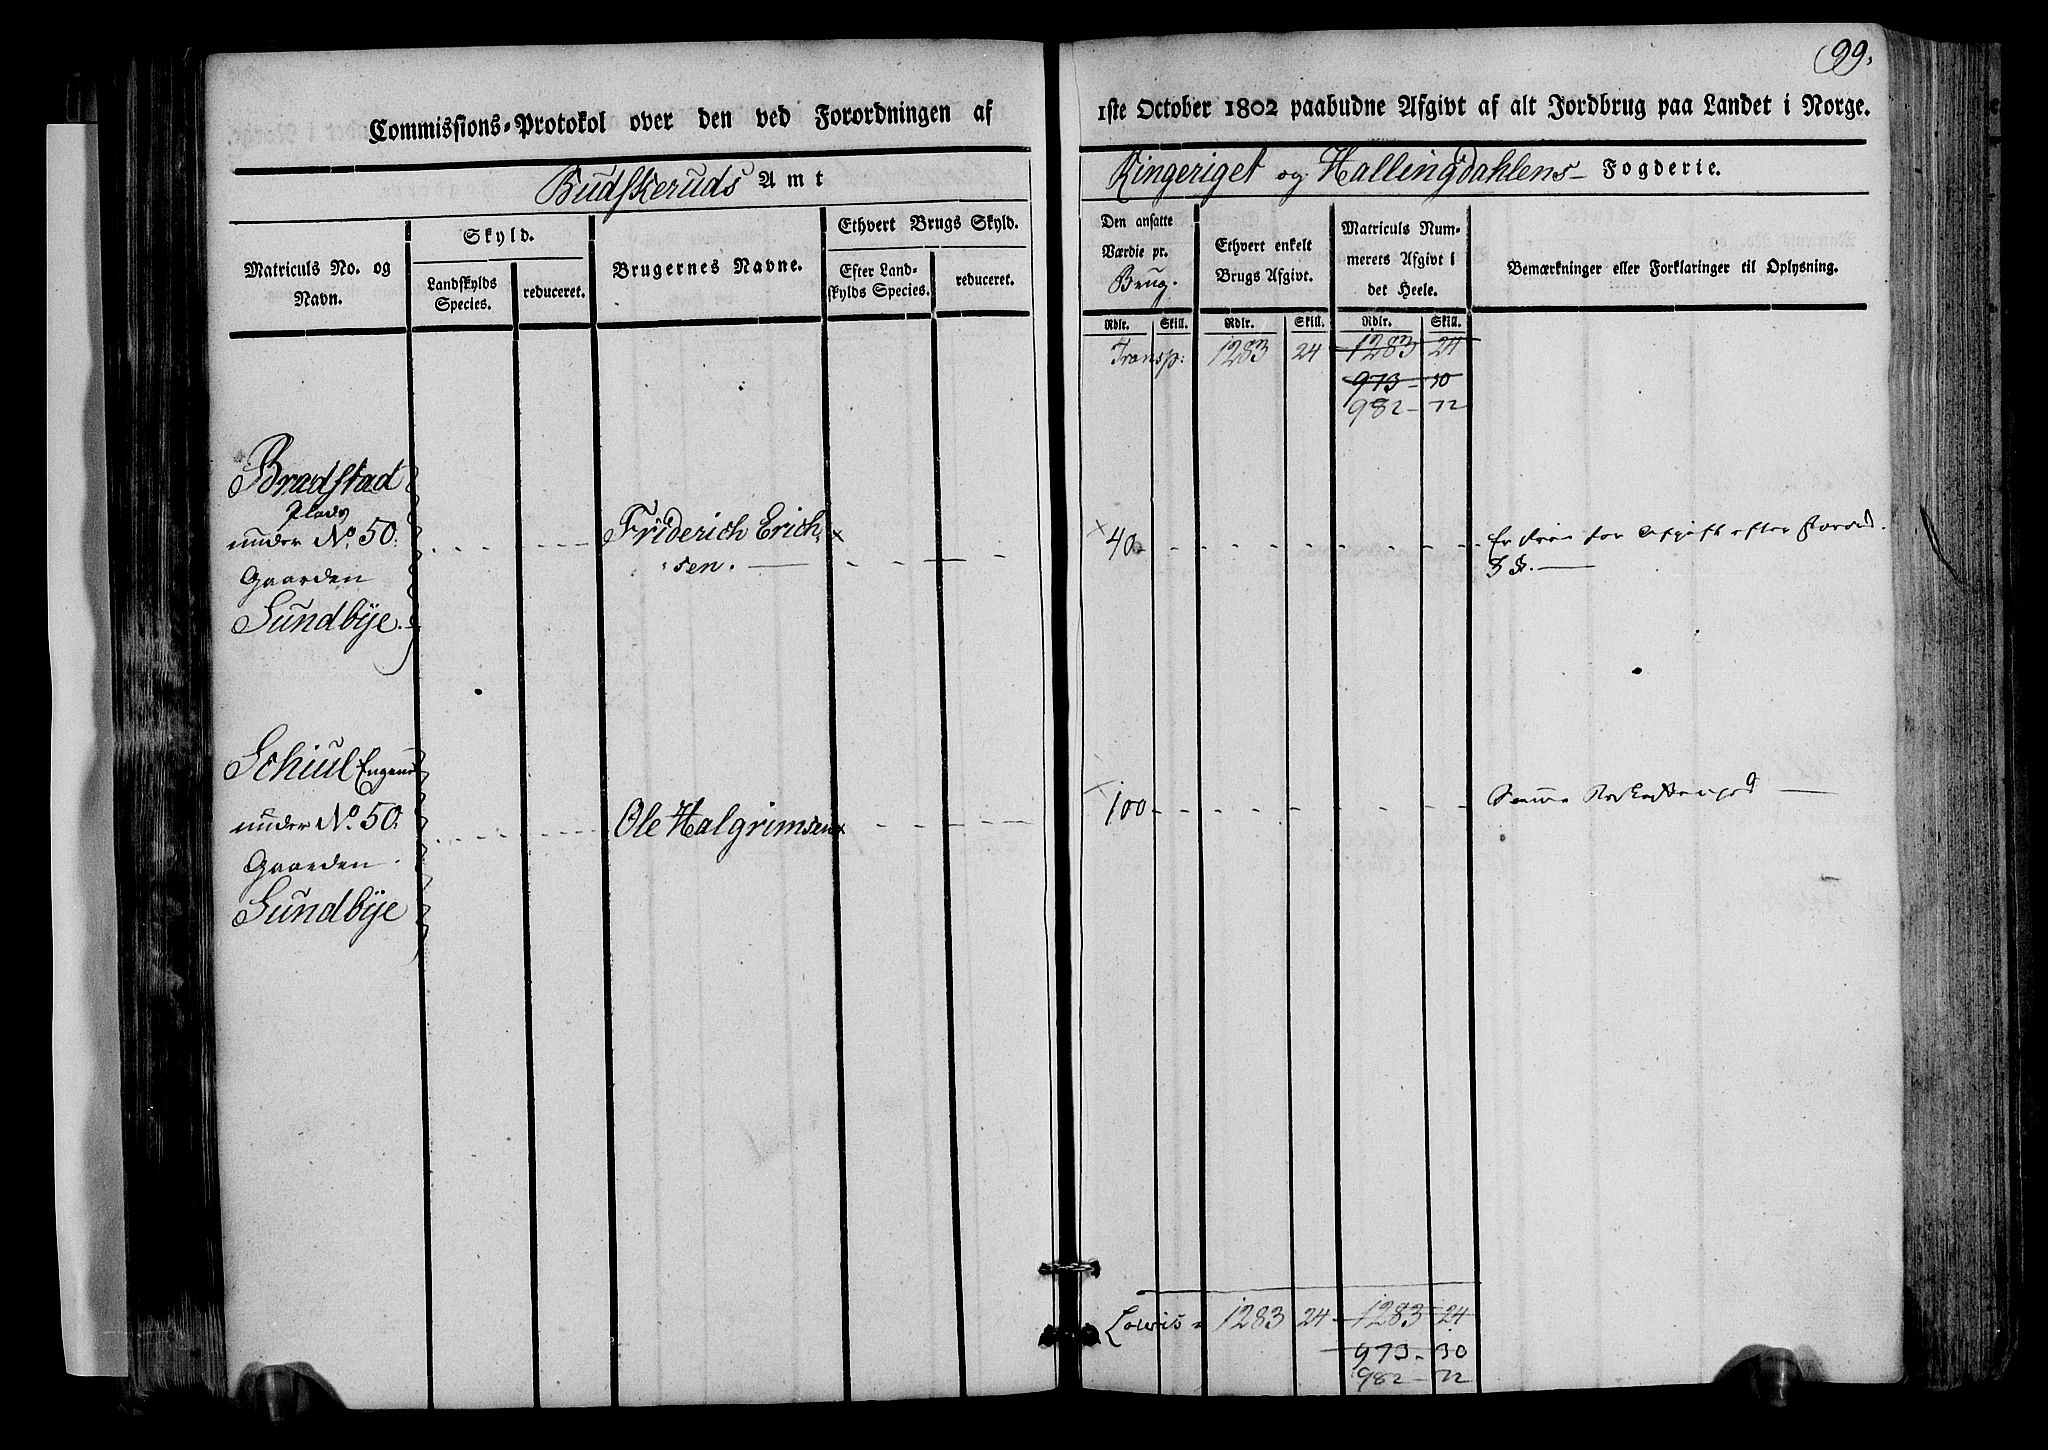 99.
Commissions-Protokol over den ved Forordningen af 1ste October 1802 paabudne Afgivt af alt Jordbrug paa Landet i Norge.
Budskeruds Amt
Ringeriget og Hallingdahlens Fogderie.
Matriculs No. og Navn.
Skyld.
Landskylds Species.
reduceret.
Brugernes Navne.
Ethvert Brugs Skyld.
Efter Landskylds Species.
reduceret.
Den ansatte Værdie pr. Brug.
Ethvert enkelt Brugs Afgivt.
Matriculs Nummerets Afgivt i det Heele.
Bemærkninger eller Forklaringer til Oplysning.
Rdlr. Skill. Rdlr. Skill. Rdlr. Skill.
Transp: 1283 24 1283 24
973 - 30
982 - 72
Bradstad
Plads
under No. 50.
Gaarden
Sundbÿe.
Friderich Erich
sen.
40
Er frie for Afgift efter Forord.
3 §.
Schiul Engene
under No. 50.
Gaarden
Sundbÿe
Ole Halgrimsen
100
Samme
Lateris 1283 24 1283 24
973 - 30
982 - 72